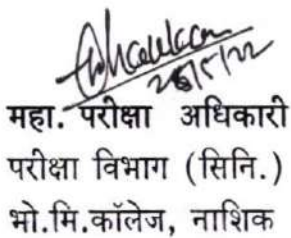 26/5/22
महा. परीक्षा अधिकारी
परीक्षा विभाग (सिनि.)
भो.मि.कॉलेज, नाशिक